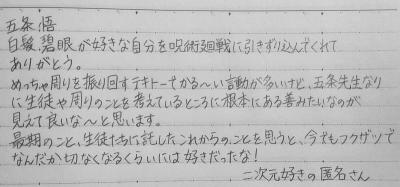 五条 悟
白髪、碧眼が好きな自分を呪術廻戦に引きずり込んでくれて
ありがとう。
めっちゃ周りを振り回すテキトーでかる〜い言動が多いけど、五条先生なり
に生徒や周りのことを考えているところに根本にある善みたいなのが
見えて良いな〜と思います。
最期のこと、生徒たちに託したこれからのことを思うと、今でもフクザツで
なんだか切なくなるくらいには好きだったな!
二次元好きの匿名さん